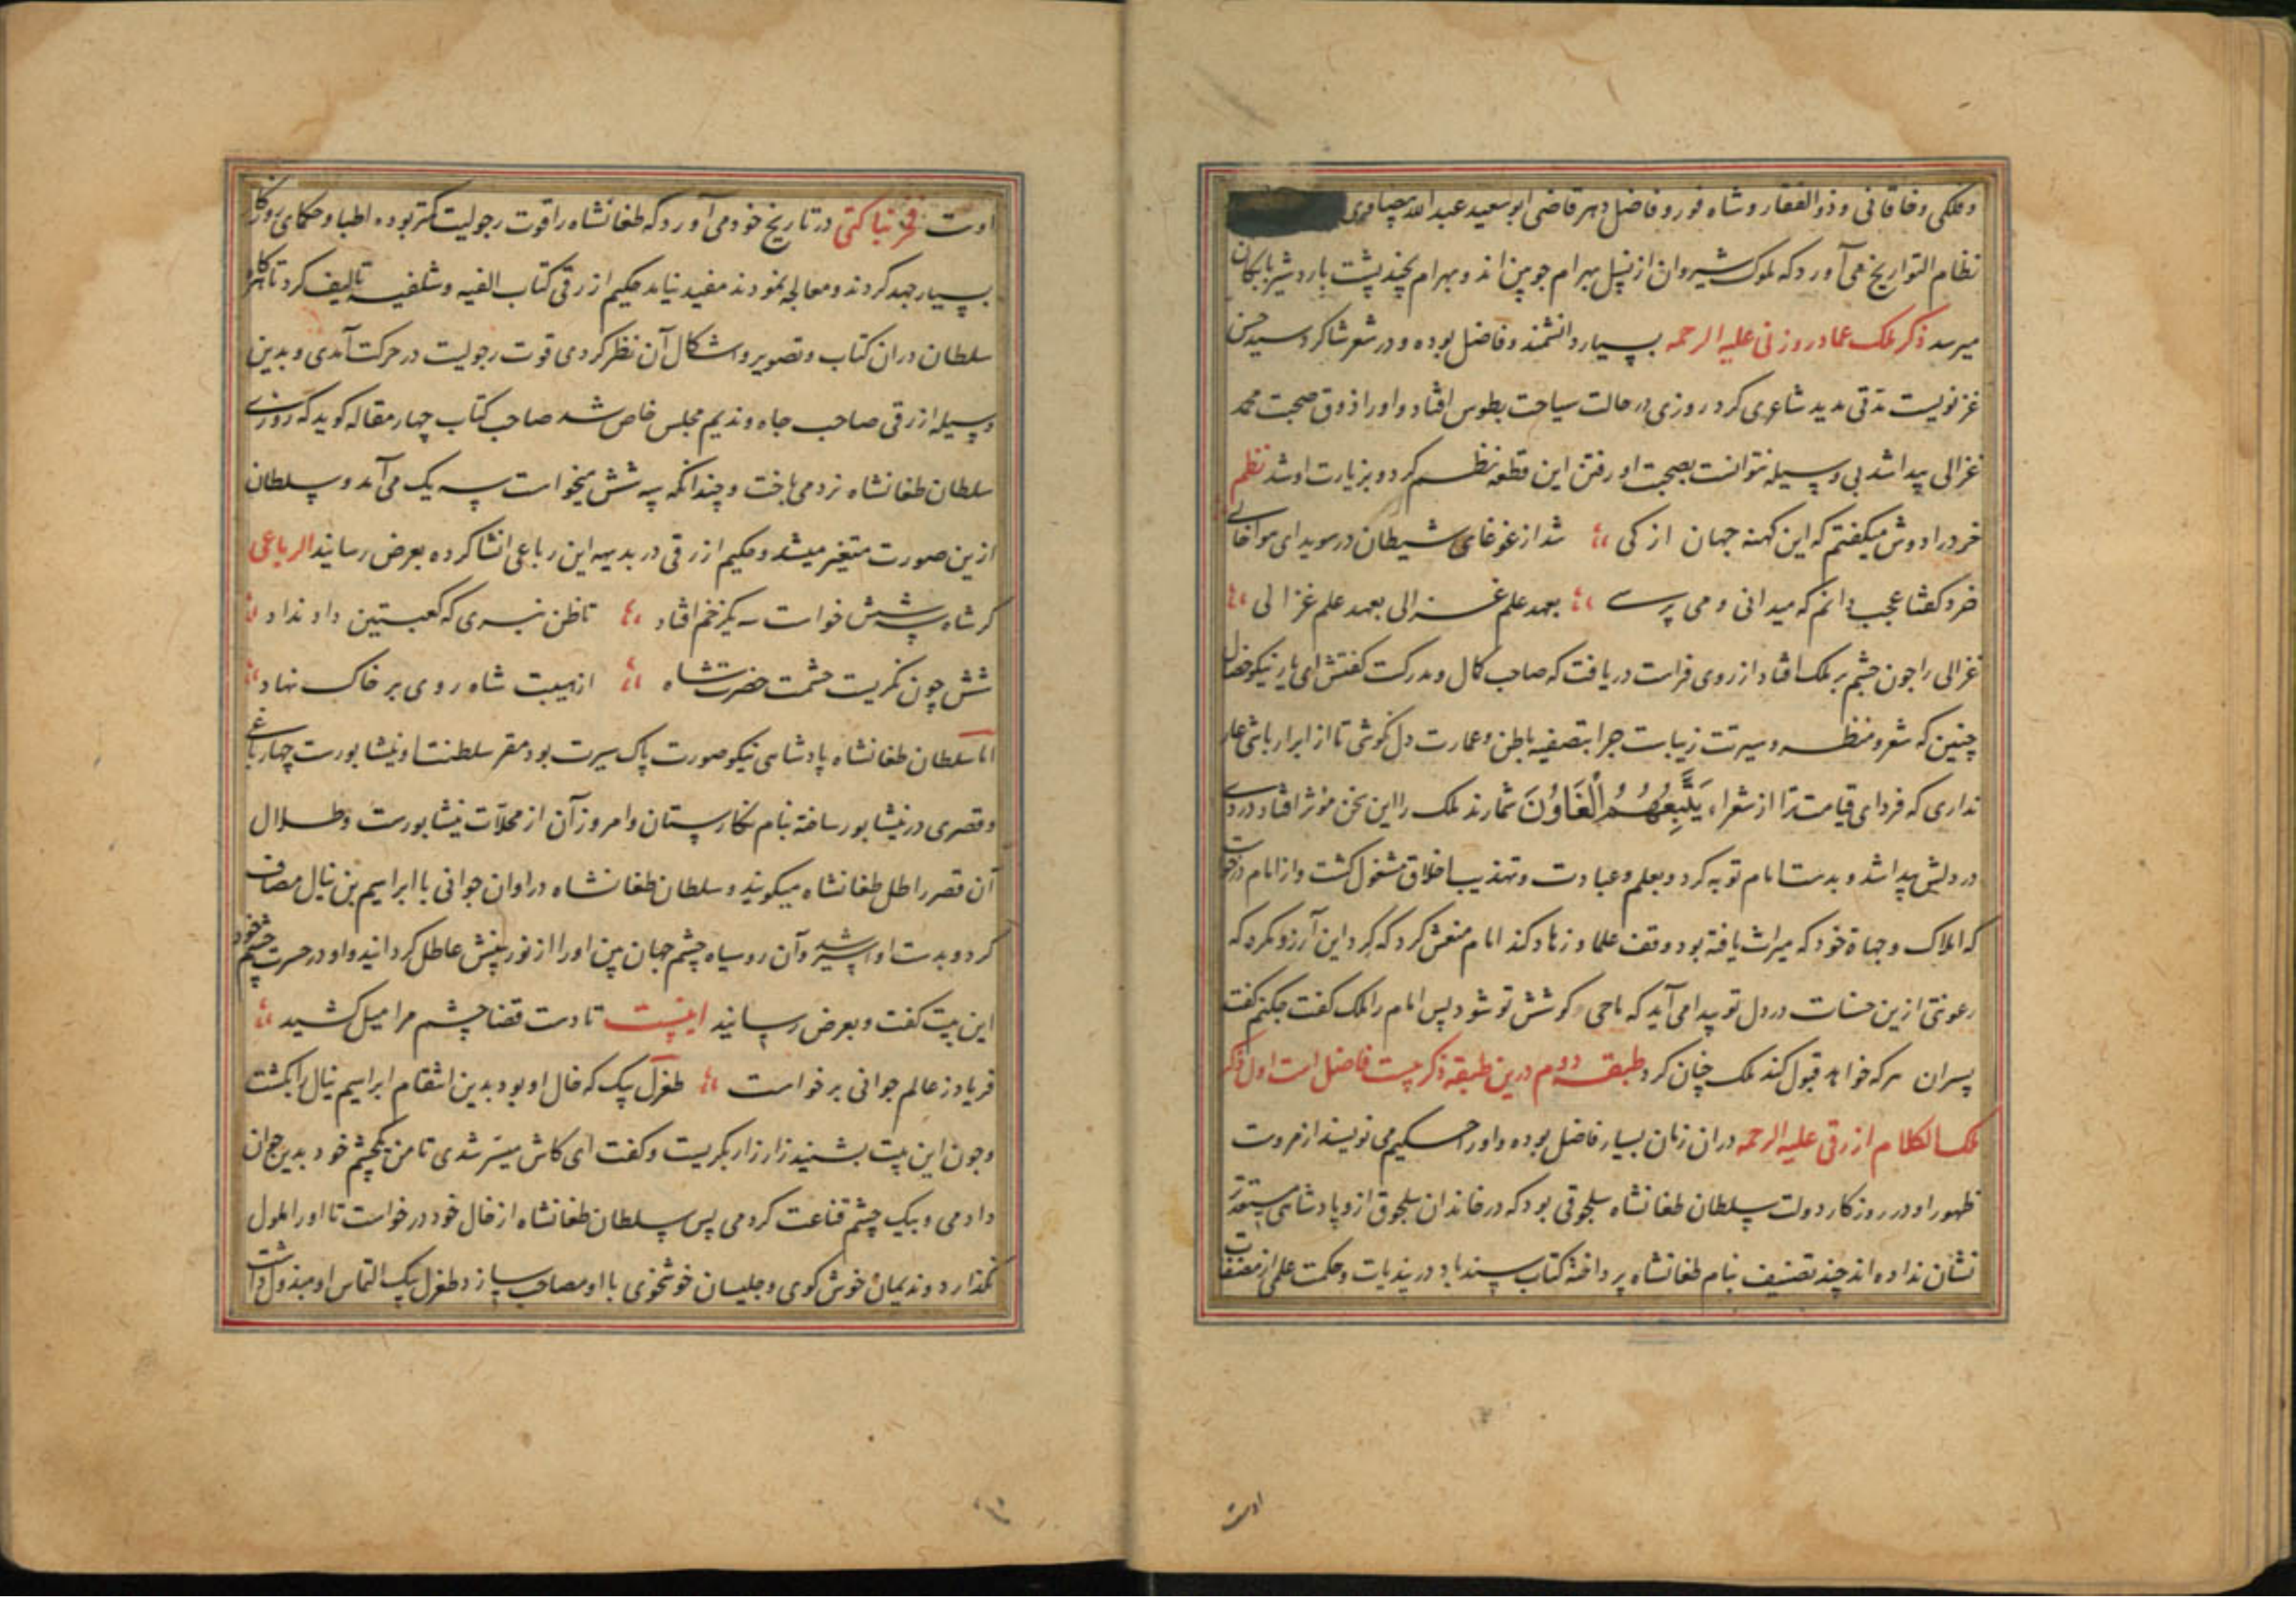 وفلکی وخاقانی و ذوالفقار و شاه فور و فاضل دهر قاضی ابو سعید عبدالله بیضاوی
نظام التواریخ می آورد که ملوک شیروان از نسل بهرام چوبین اند و بهرام بچند پشت باردشیر بابکان
میرسد ذکر ملک عماد روزنی علیه الرحمه بسیار دانشمند و فاضل بوده و در شعر شاکرد سید حسن
غزنویست مدتی مدید شاعری کرد روزی در حالت سیاحت بطوس افتاد و او را ذوق صحبت محمد
غزالی پیدا شد بی وسیله نتوانست بصحبت او رفتن این قطعه نظم کرد و بزیارت او شد نظم
خرد را دوش میکفتم که این کهنه جهان از کی شد از غوغای شیطان در سویدای هوا خالی
خرد کفتا عجب دانم که میدانی و می پرسی بعهد علم غزالی بعهد علم غزالی
غزالی را چون چشم بر ملک افتاد از روی فراست دریافت که صاحب کمال و مدرکست کفتش ای یار نیکو خصال
چنین که شعر و منظر و سیرتت زیباست چرا بتصفیه باطن و عمارت دل نکوشی تا از ابرار باشی عار
نداری که فردای قیامت ترا از شعراء یَتَّبِعُهُمُ الْغَاوُنَ شمارند ملک را این سخن مؤثر افتاد دردی
در دلش پیدا شد و بدست امام توبه کرد و بعلم و عبادت و تهذیب اخلاق مشغول کشت و از امام درخواست
که املاک و جهاة خود که میراث یافته بود وقف علما و زهاد کند امام منعش کرد که کرد این آرزو مکرد که
رعونتی ازین حسنات در دل تو پیدا می آید که ماحی کوشش تو شود پس امام را ملک کفت چکنم کفت
پسران هر که خواهد قبول کند ملک چنان کرد طبقه دوم درین طبقه ذکر بیست فاضل است اول ذکر
ملک الکلام ازرقی علیه الرحمه در آن زمان بسیار فاضل بوده و او را حکیم می نویسند از هروست
ظهور او در روزکار دولت سلطان طغانشاه سلجوقی بود که در خاندان سلجوق ازو پادشاهی مستعدتر
نشان نداده اند چند تصنیف بنام طغانشاه پرداخته کتاب سندباد در پندیات و حکمت علمی از مصنفات
اوست
اوست فخر بناکتی در تاریخ خود می آورد که طغانشاه را قوت رجولیت کمتر بوده اطبا و حکمای روزکار
بسیار جهد کردند و معالجه نمودند مفید نیامد حکیم ازرقی کتاب الفیه و شلفیه تالیف کرد تا هرکاه
سلطان در آن کتاب و تصویر و اشکال آن نظر کردی قوت رجولیت در حرکت آمدی و بدین
وسیله ازرقی صاحب جاه و ندیم مجلس خاص شد صاحب کتاب چهار مقاله کوید که روزی
سلطان طغانشاه نرد می باخت و چندانکه سه شش میخواست سه یک می آمد و سلطان
ازین صورت متغیر میشد و حکیم ازرقی در بدیهه این رباعی انشا کرده بعرض رسانید الرباعی
کر شاه سه شش خواست سه یک زخم افتاد تا ظن نبری که کعبتین داد نداد
شش چون نکریست حشمت حضرت شاه از هیبت شاه روی بر خاک نهاد
اما سلطان طغانشاه پادشاهی نیکو صورت پاک سیرت بود مقر سلطنت او نیشابورست چهار باغی
و قصری در نیشابور ساخته بنام نکارستان و امروز آن از محلات نیشابورست و طلال
آن قصر را طل طغانشاه میکویند و سلطان طغانشاه در اوان جوانی با ابراهیم بن نیال مصاف
کرد و بدست او اسیر شد و آن روسیاه چشم جهان بین او را از نور بینش عاطل کردانید و او در حسرت چشم خود
این بیت کفت و بعرض رسانید اینست تا دست قضا چشم مرا میل کشید
فریاد ز عالم جوانی برخواست طغرل بیک که خال او بود بدین انتقام ابراهیم نیال را بکشت
و چون این بیت بشنید زار زار بکریست و کفت ای کاش میسر شدی تا من یکچشم خود بدین جوان
دادمی و بیک چشم قناعت کردمی پس سلطان طغانشاه از خال خود درخواست تا او را ملول
نکذارد و ندیمان خوش کوی و جلیسان خوشخوی با او مصاحب سازد طغرل بیک التماس او مبذول داشت